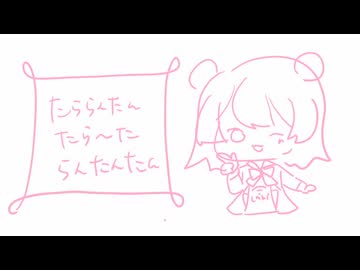 たららんたん
たら〜た
らんたんたん